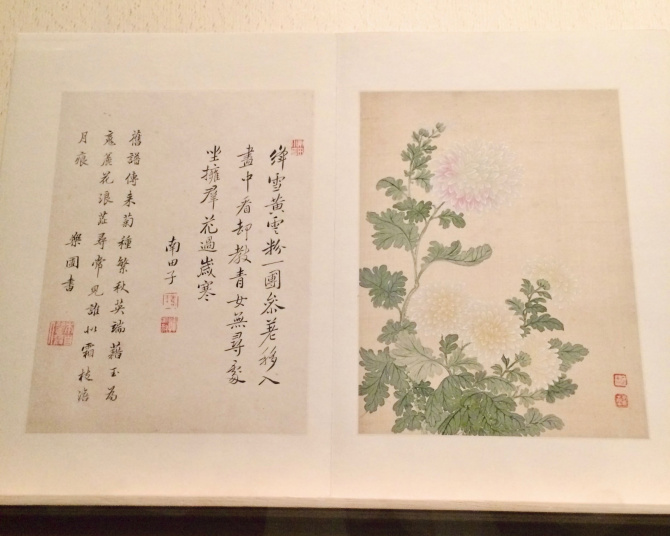 絳雪黃雲粉一團參差移入
畫中看却教青女無尋處
坐擁羣花過歲寒
南田子
舊譜傳來菊種繁秋英瑞藹玉為
花浪蕊尋常見誰似霜枝
月痕
樂圃書